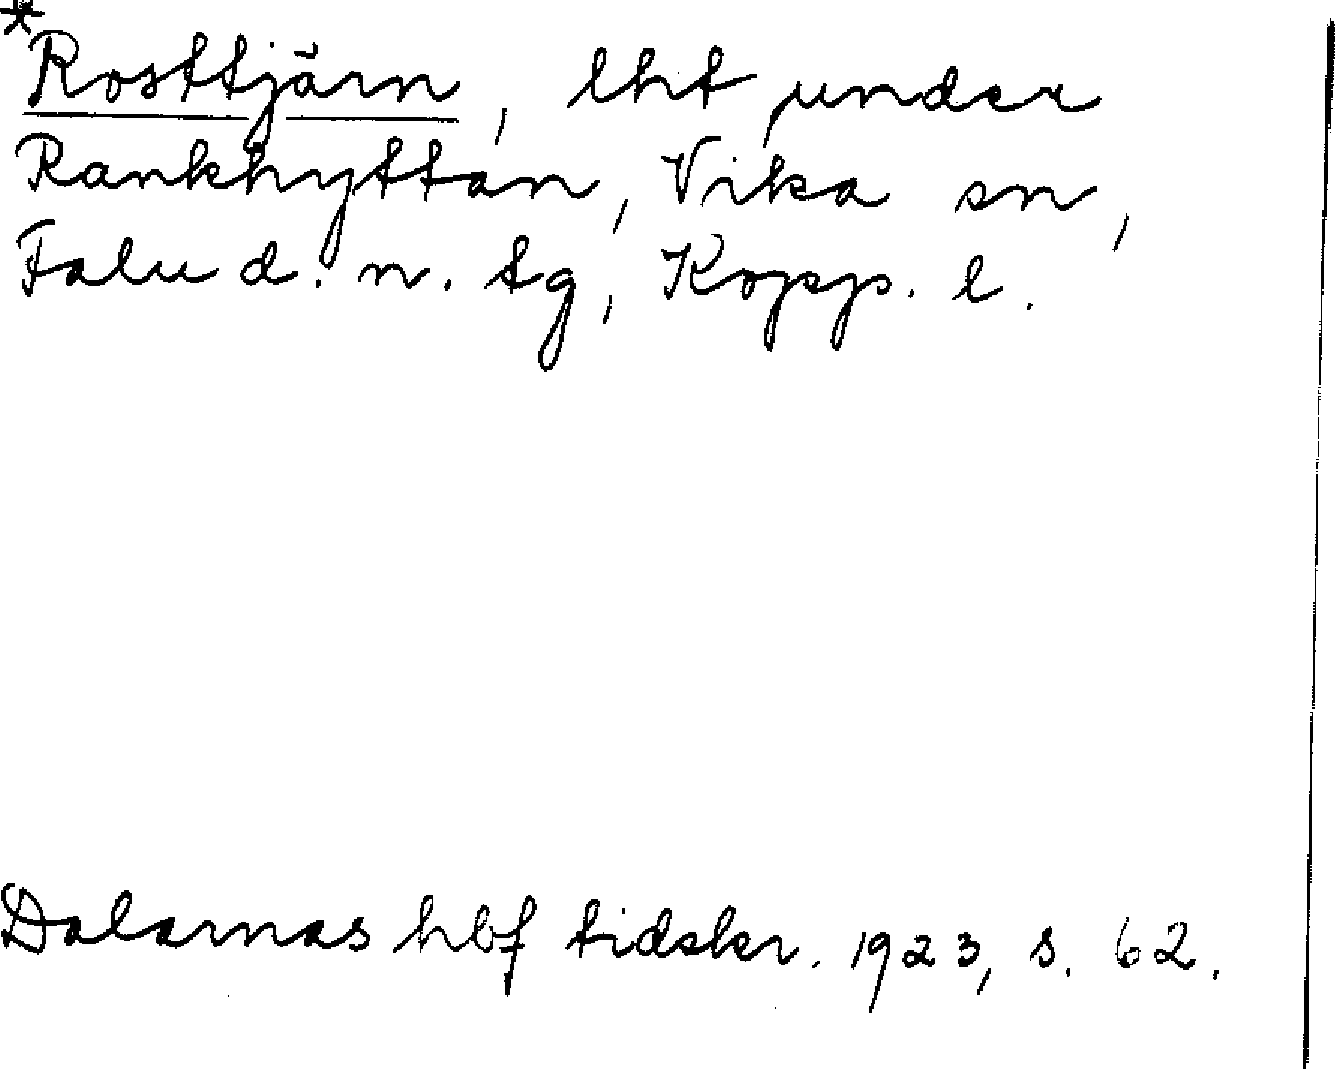 *
Rosttjärn, lht under
Rankhyttan, Vika sn,
Falu d. n. tg, Kopp. l.
Dalarnas hbf tidskr. 1923, s. 62.